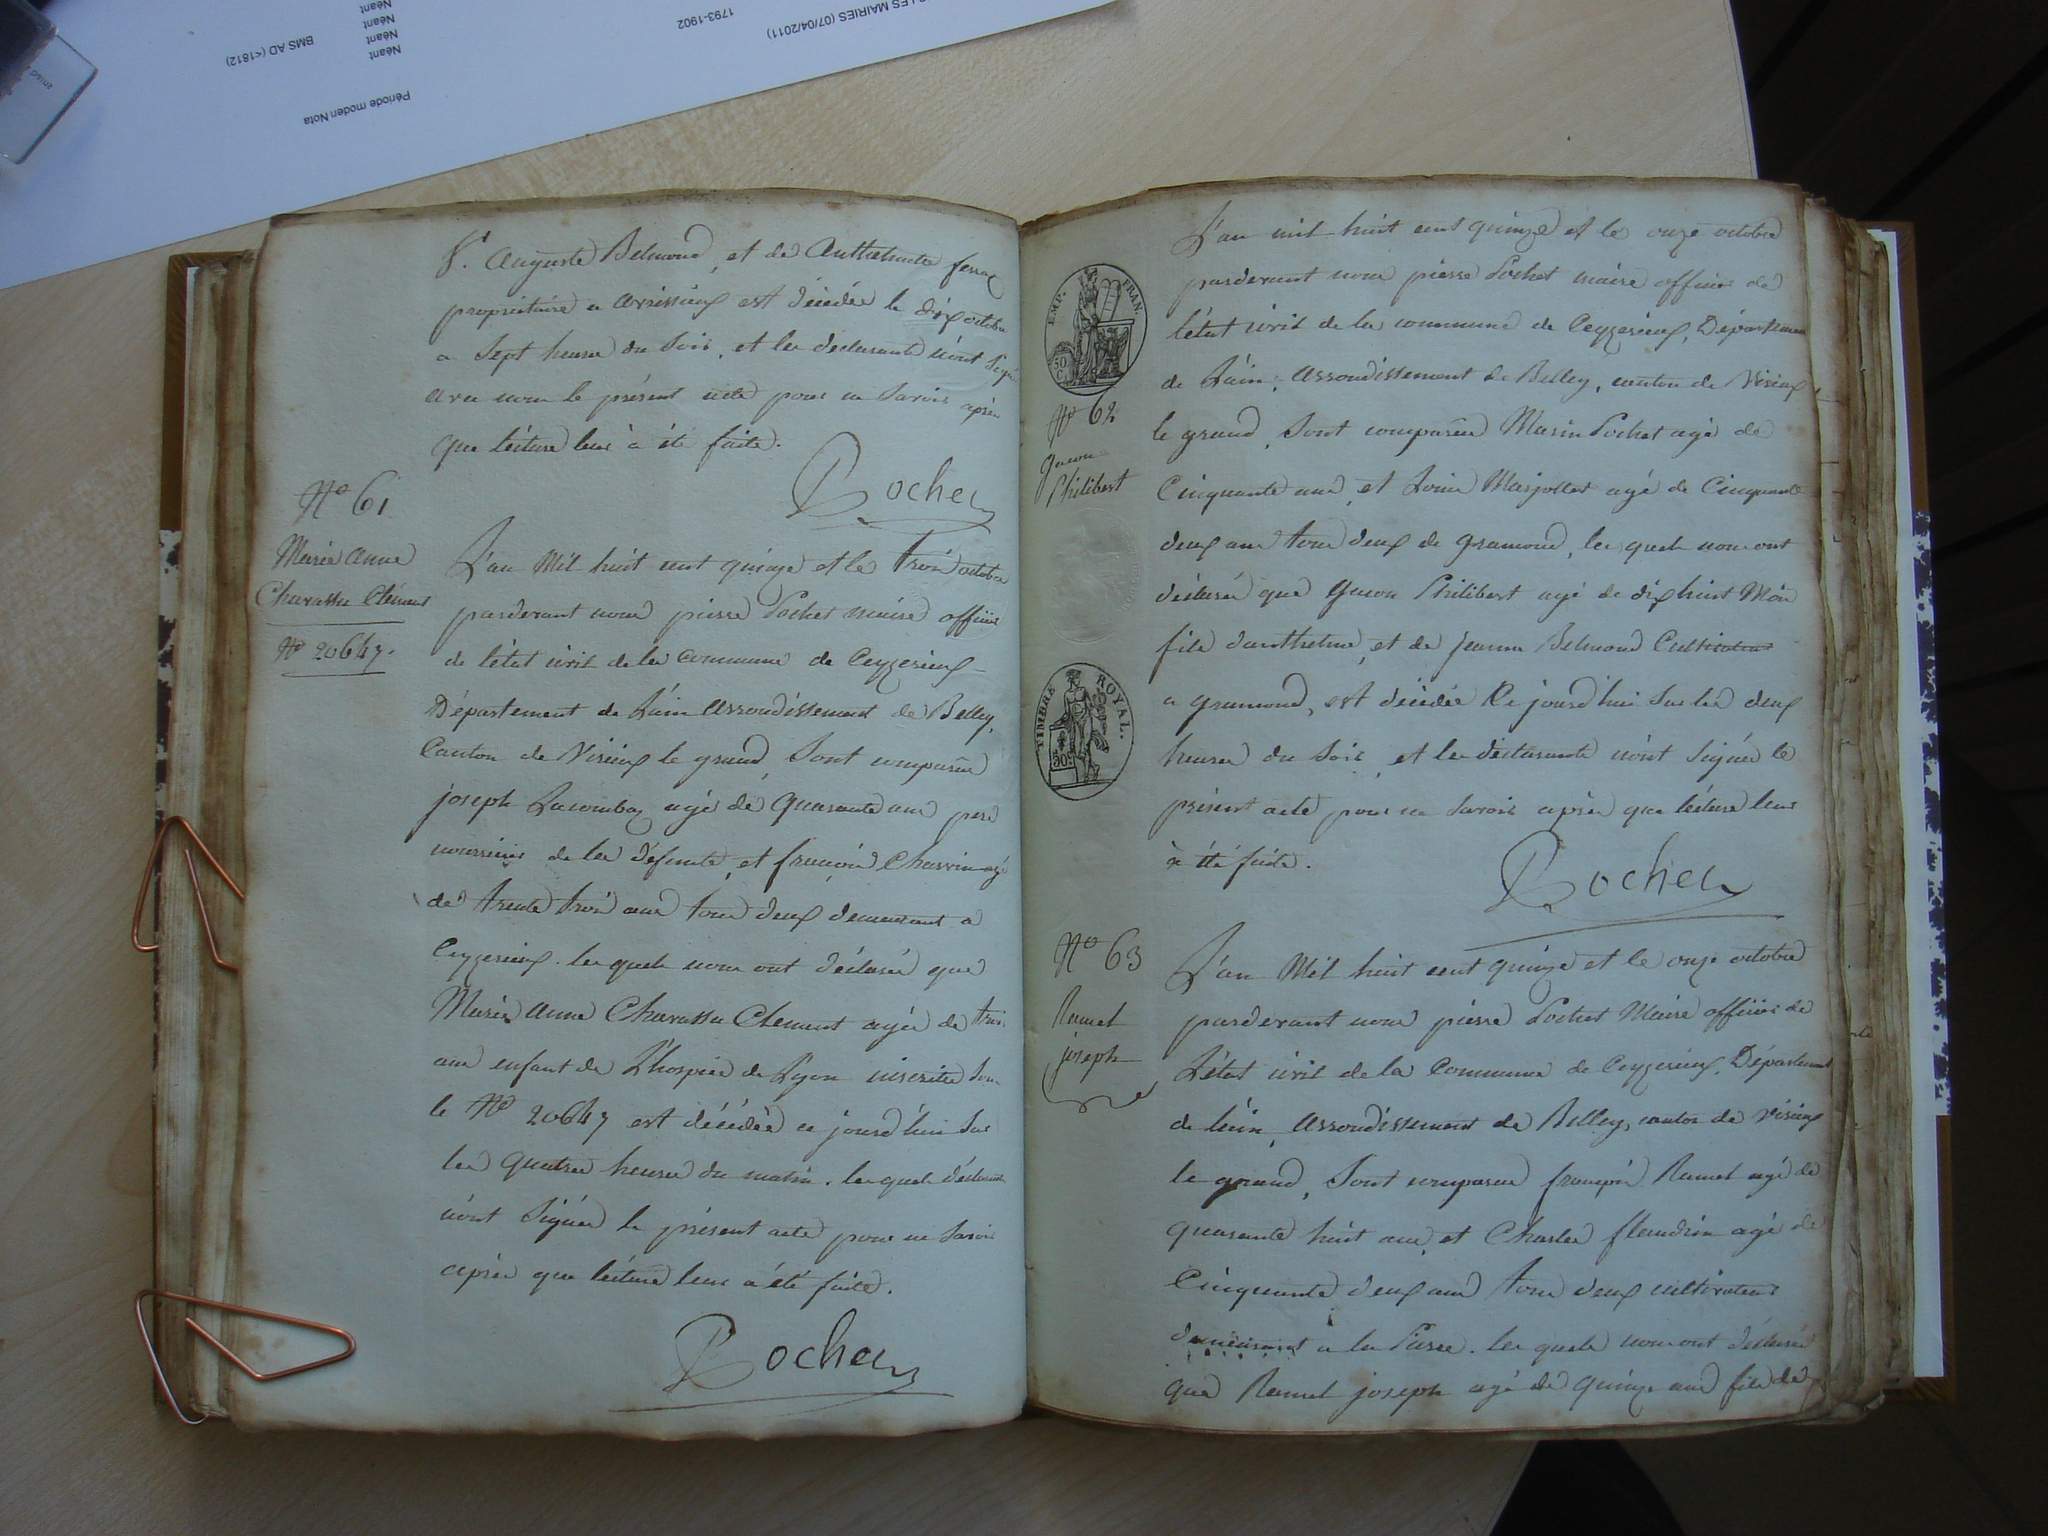 LES MAIRIES (07/04/2011)
1793-1902
Néant
Néant
Néant
Néant
BMS AD (<1812)
Période modern Nota
Sr. Auguste Belmond, et de Anthelmette
propriétaire a est décédée le dix octobre
a Sept heures du Soir, et les declarants n'ont Signé
avec nous le présent acte pour ne Savoir après
que lecture leur à été faite.
Pochet
N° 61
Marie Anne
Charassu Clément
N° 20647.
L'an Mil huit cent quinze et le trois octobre
pardevant nous pierre Pochet maire officier
de l'état civil de la commune de Ceyzerieux
Département de L'ain Arrondissement de Belley,
Canton de Virieux le grand, Sont comparus
joseph Lacombaz agé de Quarante ans pere
nourricier de la défunte, et françois Charvin agé
de trente trois ans tous deux demeurant a
Ceyzerieux. les quels nous ont déclarés que
Marie Anne Charassu Clement agée de trois
ans enfant de L'hospice de Lyon inscrite Sous
le N° 20647 est décédée ce jourd'hui Sur
les Quatres heures du matin. les quels déclarants
n'ont Signés le présent acte pour ne Savoir
après que lecture leur a été faite.
Pochet
EMP. FRAN.
50 C.
N° 62
Gucon
Philibert
TIMBRE ROYAL.
50c
L'an mil huit cent quinze et le onze octobre
pardevant nous pierre Pochet maire officier de
l'état civil de la commune de Ceyzerieux, Département
de L'ain, Arrondissement de Belley, canton de Virieux
le grand, Sont comparus Marin Pochet agé de
Cinquante ans, et Louis Marjollet agé de Cinquante
deux ans tous deux de gramond, les quels nous ont
déclarés que Gucon Philibert agé de dix huit Mois
fils d'anthelme, et de jeanne Belmond Cultivateurs
a gramond, est décédée Ce jourd'hui Sur les deux
heures du Soir, et les déclarants n'ont Signés le
présent acte pour ne Savoir après que lecture leur
à été faite.
Pochet
N° 63
Ramel
joseph
L'an Mil huit cent quinze et le onze octobre
pardevant nous pierre Pochet Maire officier de
L'état civil de la Commune de Ceyzerieux, Département
de L'ain, Arrondissement de Belley, canton de Virieux
le grand, Sont comparus françois Ramel agé de
quarante huit ans, et Charles flandrin agé de
Cinquante deux ans tous deux cultivateurs
demeurant a la les quels nous ont déclarés
que Ramel joseph agé de quinze ans fils de